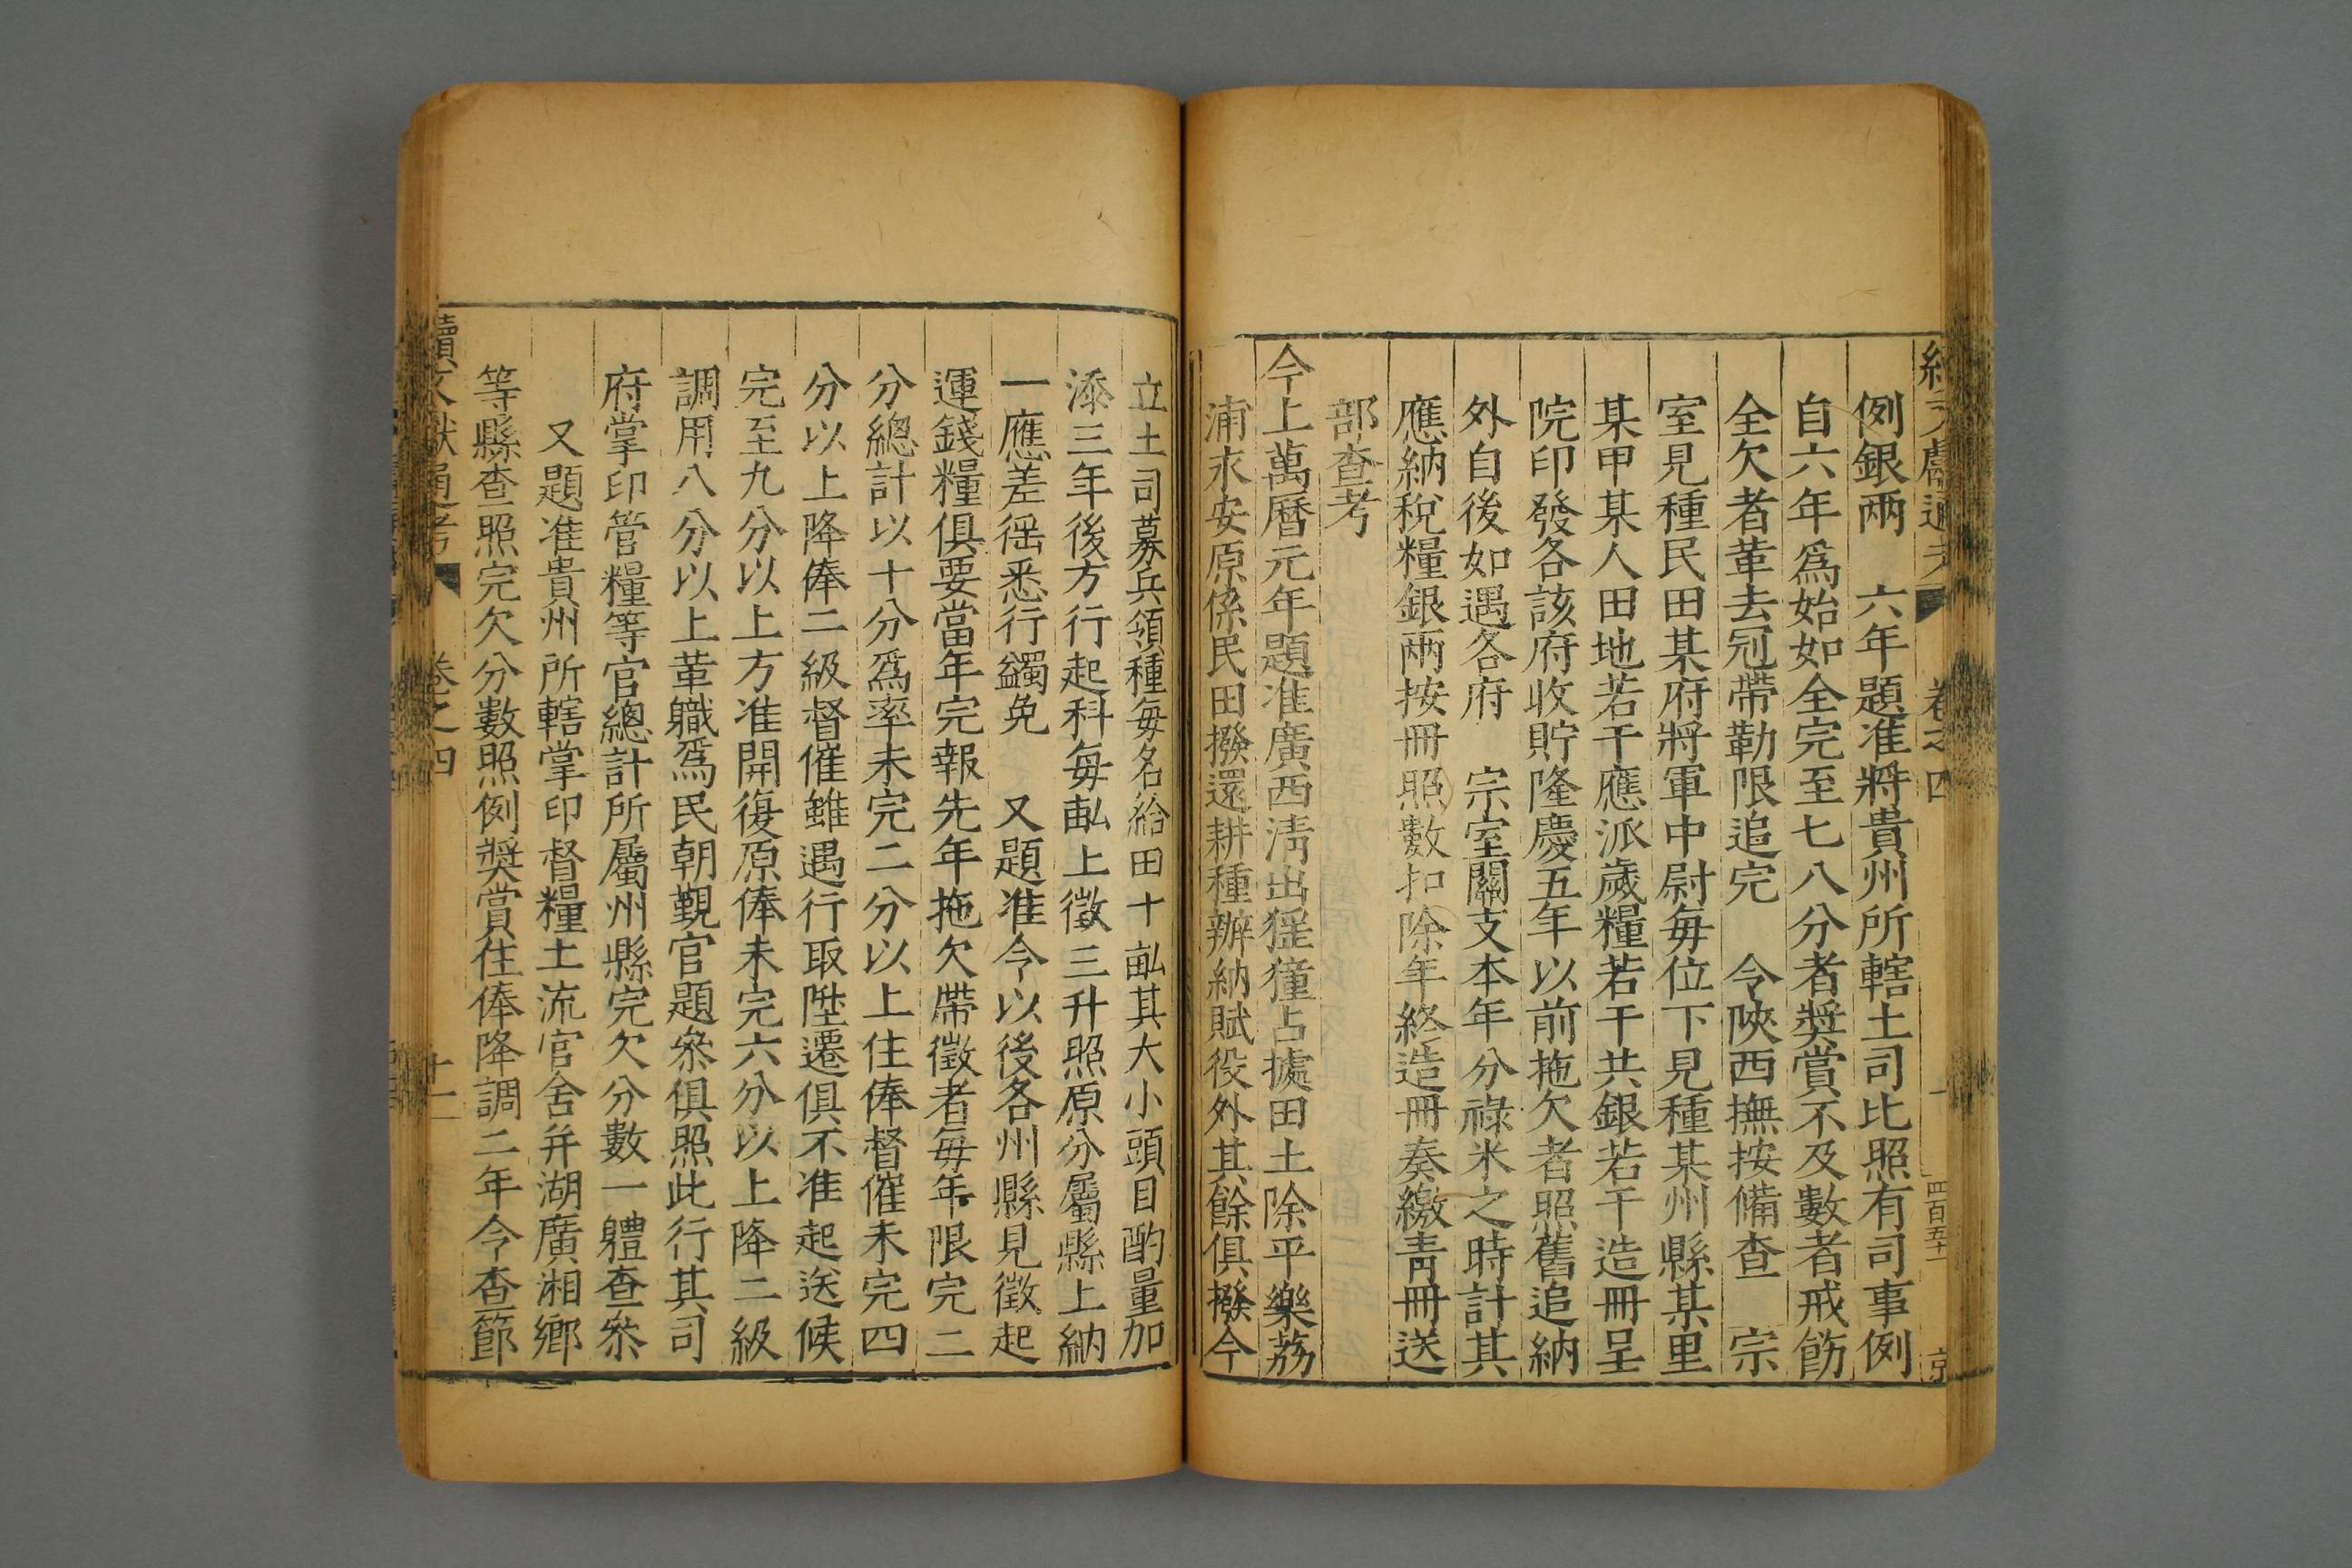 例銀兩　六年題准將貴州所轄土司比照有司事例
自六年爲始如全完至七八分者獎賞不及數者戒飭
全欠者革去冠帶勒限追完　令陝西撫按備查　宗
室見種民田某府將軍中尉每位下見種某州縣某里
某甲某人田地若干應派歲糧若干共銀若干造冊呈
院印發各該府收貯隆慶五年以前拖欠者照舊追納
外自後如遇各府　宗室關支本年分祿米之時計其
應納稅糧銀兩按冊照數扣除年終造冊奏繳靑冊送
部查考
今上萬曆元年題准廣西清出猺獞占據田土除平樂荔
浦永安原係民田撥還耕種辦納賦役外其餘俱撥今
立土司募兵領種每名給田十畝其大小頭目酌量加
添三年後方行起科每畝上徵三升照原分屬縣上納
一應差徭悉行蠲免　又題准今以後各州縣見徵起
運錢糧俱要當年完報先年拖欠帶徵者每年限完二
分總計以十分爲率未完二分以上住俸督催未完四
分以上降俸二級督催雖遇行取陞遷俱不准起送候
完至九分以上方准開復原俸未完六分以上降二級
調用八分以上革職爲民朝覲官題叅俱照此行其司
府掌印管糧等官總計所屬州縣完欠分數一體查叅
又題准貴州所轄掌印督糧土流官舍并湖廣湘鄉
等縣查照完欠分數照例獎賞住俸降調二年令查節
續文獻通考　卷之四　十一